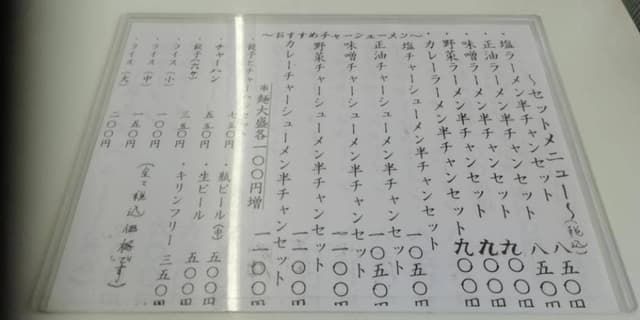 ～セットメニュー～(税込)
・塩ラーメン半チャンセット 八五〇円
・正油ラーメン半チャンセット 八五〇円
・味噌ラーメン半チャンセット 九〇〇円
・野菜ラーメン半チャンセット 九〇〇円
・カレーラーメン半チャンセット 九〇〇円
～おすすめチャーシューメン～
塩チャーシューメン半チャンセット 一〇五〇円
正油チャーシューメン半チャンセット 一〇五〇円
味噌チャーシューメン半チャンセット 一一〇〇円
野菜チャーシューメン半チャンセット 一一〇〇円
カレーチャーシューメン半チャンセット 一一〇〇円
※麺大盛各一〇〇円増
餃子とチャー 七五〇円
・チャーハン 五五〇円
・餃子(六ヶ) 三五〇円
・ライス(小) 一〇〇円
・ライス(中) 一五〇円
・ライス(大) 二〇〇円
・瓶ビール(中) 五〇〇円
・生ビール 五〇〇円
・キリンフリー 三五〇円
(全て税込価格です)